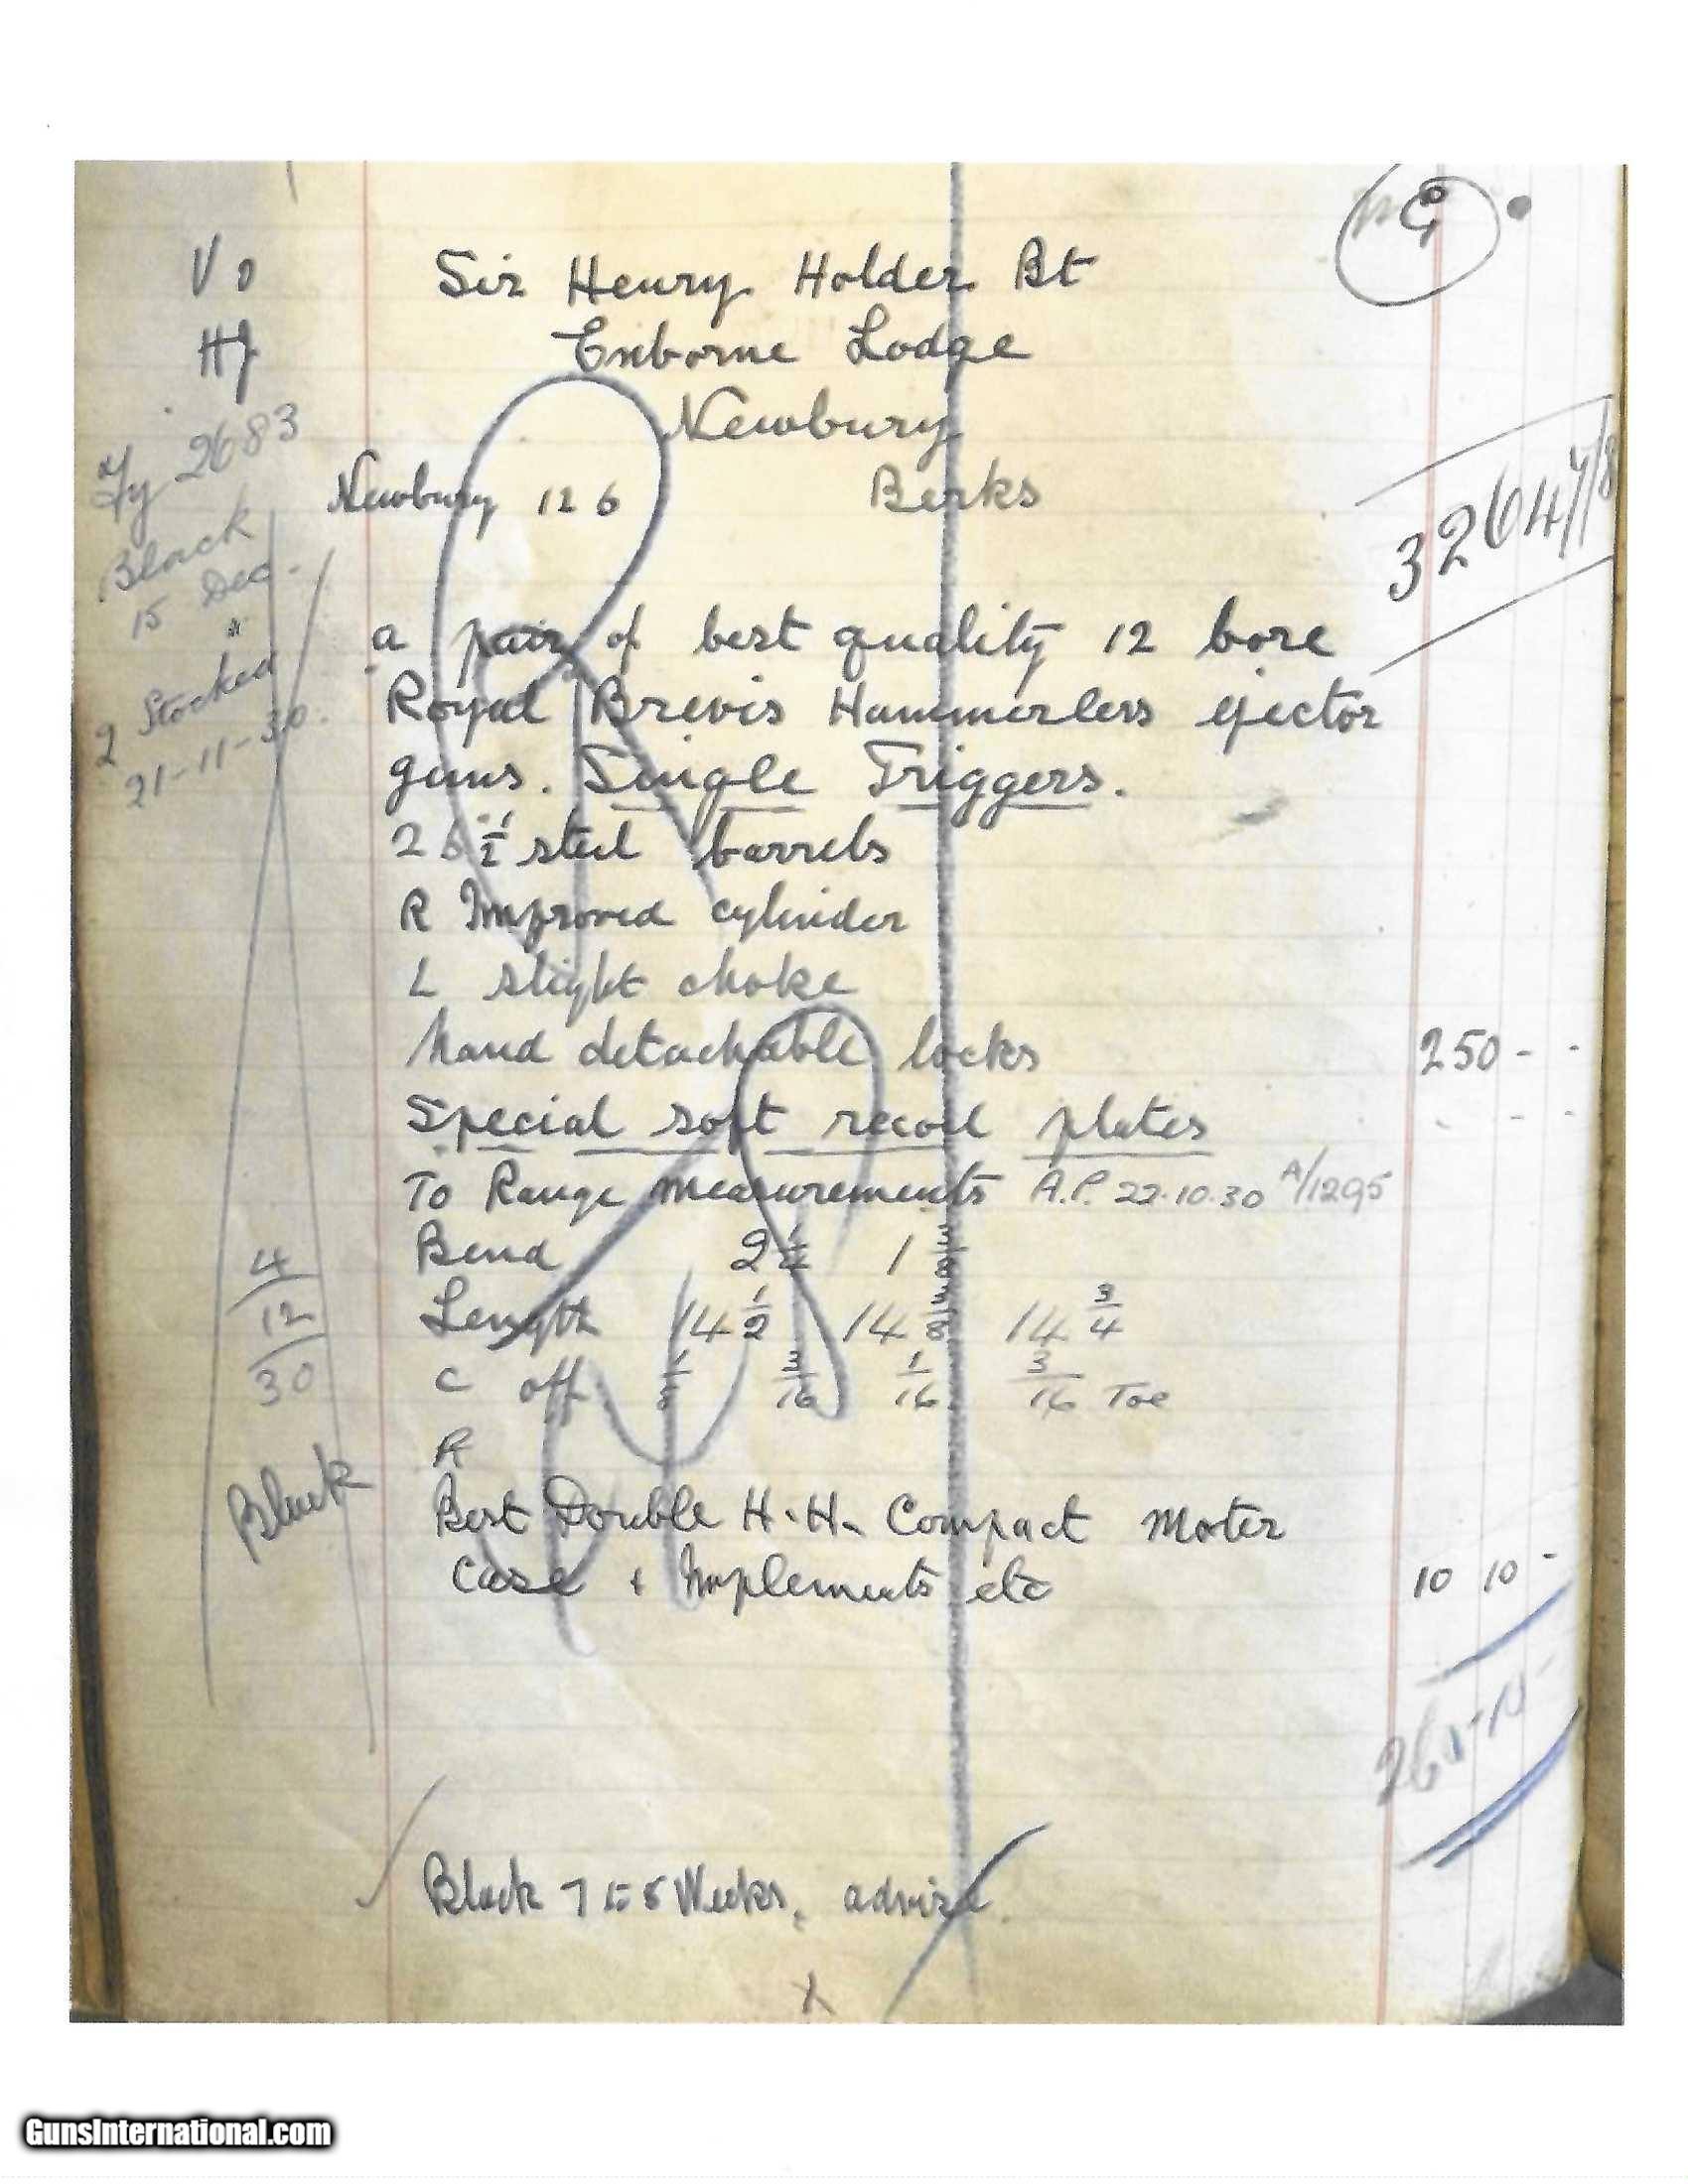 Sir Henry Holder Bt
Enborne Lodge
Newbury
Berks
Newbury 126
2683
Black
15 Dec.
"
2 Stocked
21-11-30.
32647/8
a pair of best quality 12 bore
Royal Brevis Hammerless ejector
guns. Single Triggers.
26 1/2 steel barrels
R Improved cylinder
L slight choke
Hand detachable locks 250 - -
Special soft recoil plates - -
To Range measurements A.P. 22.10.30 A/1295
Bend 2 1 3/8
Length 14 1/2 14 3/8 14 3/4
C off 1/8 3/16 1/16 3/16 Toe
R
4
12
30
Black
Best Double H.H. Compact Motor
Case + Implements etc 10 10 -
260-10-
Black 7 to 8 Weeks, advise
X
GunsInternational.com